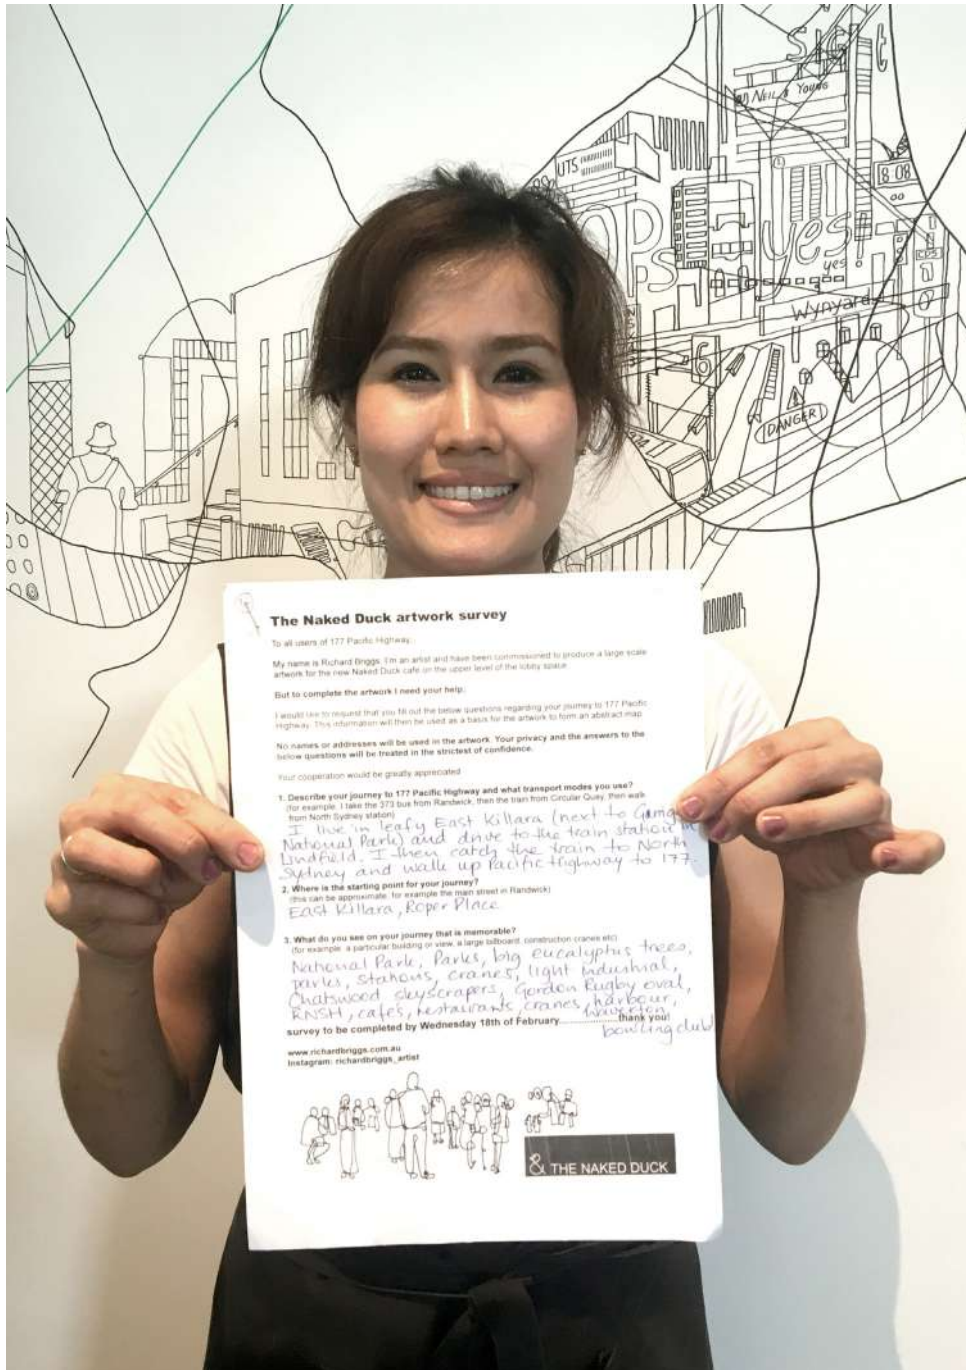 Sight
NEIL & YOUNG
UTS
OPs
8:08
yes!
yes
Wynyard
6
DANGER
The Naked Duck artwork survey
To all users of 177 Pacific Highway,
My name is Richard Briggs. I'm an artist and have been commissioned to produce a large scale
artwork for the new Naked Duck cafe on the upper level of the lobby space.
But to complete the artwork I need your help:
I would like to request that you fill out the below questions regarding your journey to 177 Pacific
Highway. This information will then be used as a basis for the artwork to form an abstract map.
No names or addresses will be used in the artwork. Your privacy and the answers to the
below questions will be treated in the strictest of confidence.
Your cooperation would be greatly appreciated
1. Describe your journey to 177 Pacific Highway and what transport modes you use?
(for example: I take the 373 bus from Randwick, then the train from Circular Quay, then walk
from North Sydney station)
I live in leafy East Killara (next to
National Park) and drive to the train station in
Lindfield. I then catch the train to North
Sydney and walk up Pacific Highway to 177.
2. Where is the starting point for your journey?
(this can be approximate, for example the main street in Randwick)
East Killara, Roper Place
3. What do you see on your journey that is memorable?
(for example: a particular building or view, a large billboard, construction cranes etc)
National Park, Parks, big eucalyptus trees,
parks, stations, cranes, light industrial,
Chatswood skyscrapers, Gordon Rugby oval,
RNSH, cafes, restaurants, cranes, harbour,
Waverton
bowling club
survey to be completed by Wednesday 18th of February..................thank you!
www.richardbriggs.com.au
Instagram: richardbriggs_artist
& THE NAKED DUCK